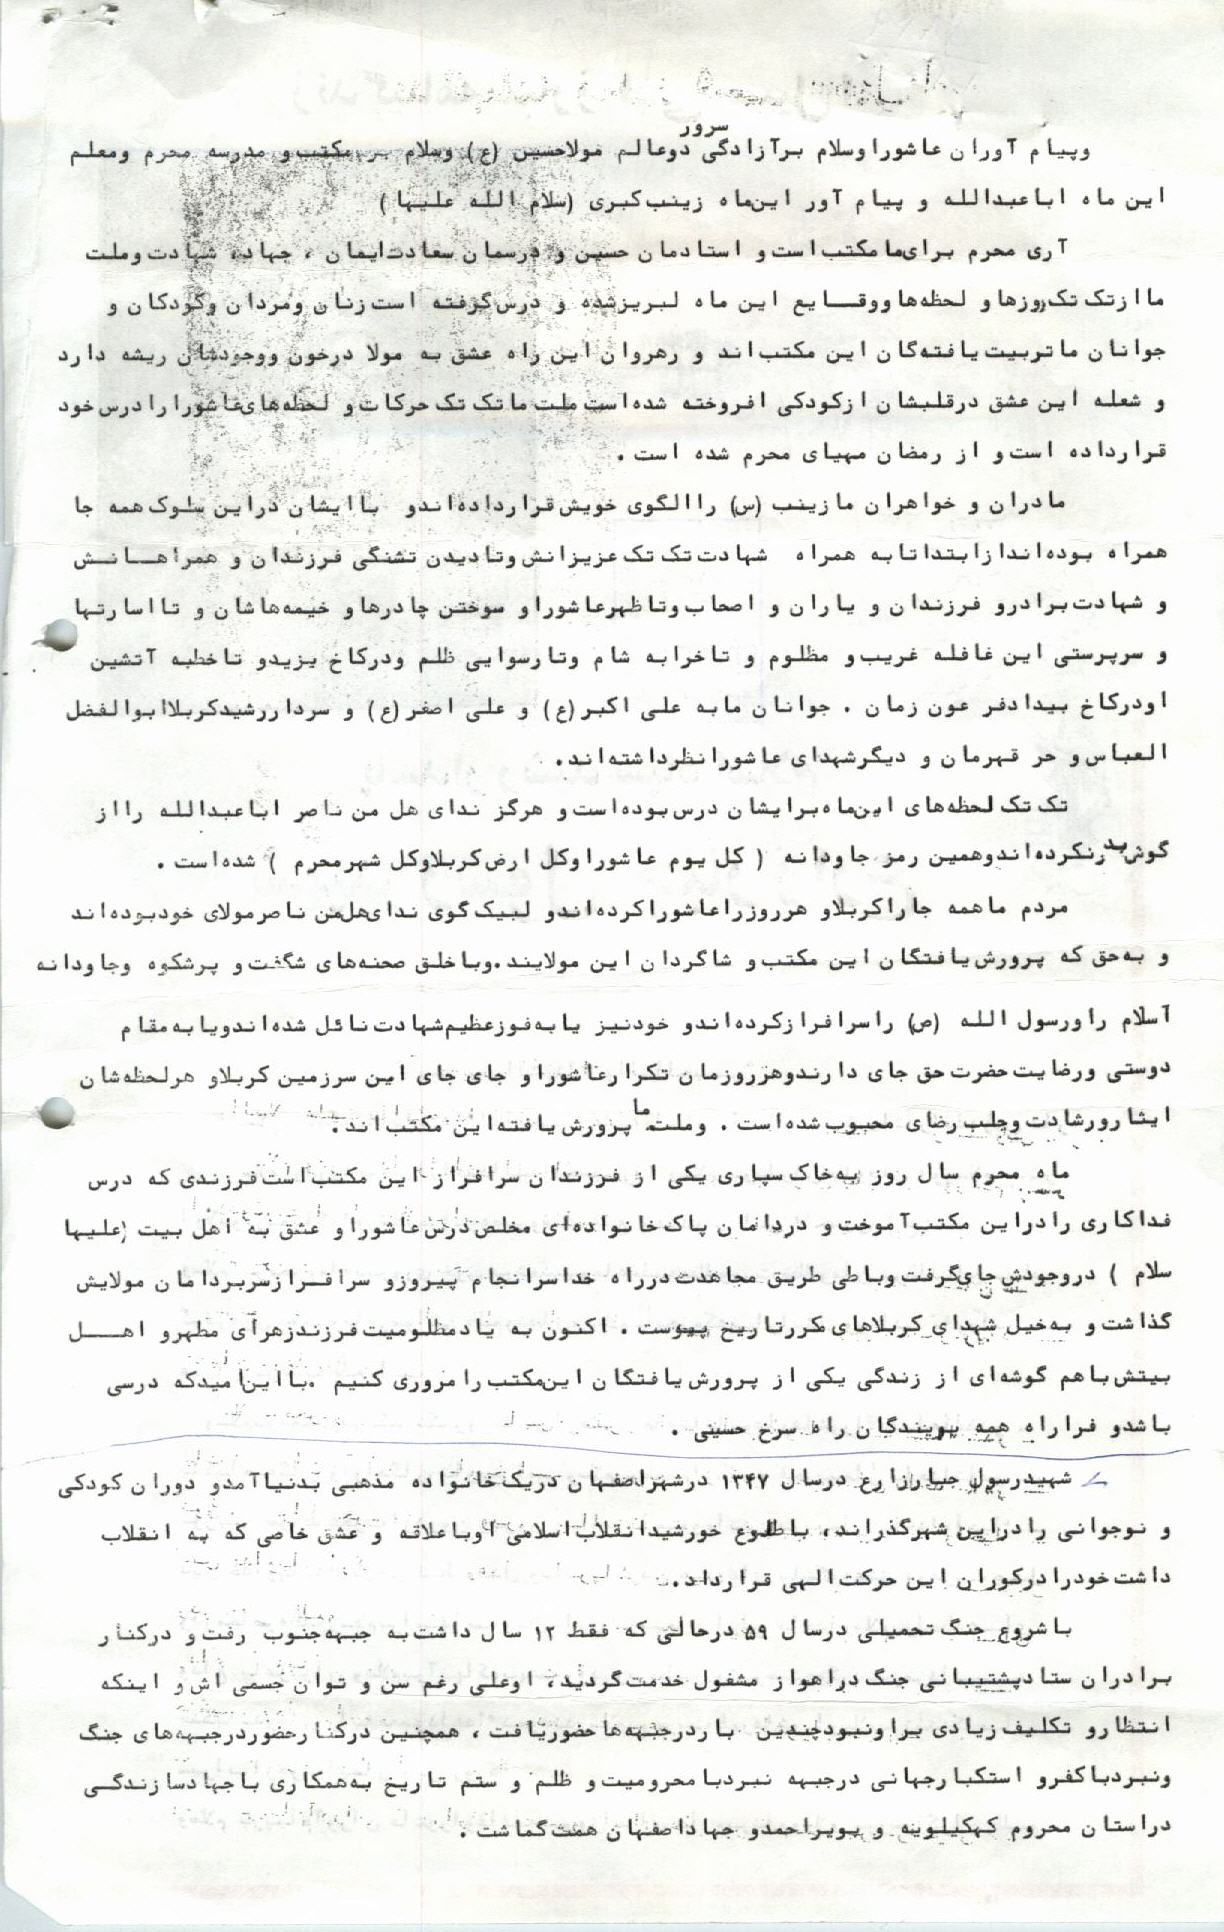 سرور
وپیام آوران عاشورا وسلام برآزادگی دوعالم مولاحسین (ع) وسلام بر مکتب و مدرسه محرم ومعلم
این ماه اباعبدالله و پیام آور این‌ماه زینب‌کبری (سلام الله علیها)
آری محرم برای‌ما مکتب است و استادمان حسین و درسمان سعادت ایمان ، جهاد، شهادت وملت
ما ازتک تک روزها و لحظه‌ها ووقایع این ماه لبریزشده و درس‌گرفته است زنان ومردان وکودکان و
جوانان ماتربیت یافته‌گان این مکتب‌اند و رهروان این راه عشق به مولا درخون ووجودشان ریشه دارد
و شعله این عشق درقلبشان ازکودکی افروخته شده‌است ملت ماتک تک حرکات و لحظه‌های‌عاشورا را درس خود
قرارداده است و از رمضان مهیای محرم شده است .
مادران و خواهران مازینب (س) راالگوی خویش قرارداده‌اندو باایشان دراین سلوک همه جا
همراه بوده‌اندازابتداتابه همراه شهادت تک تک عزیزانش وتادیدن تشنگی فرزندان و همراهانش
و شهادت برادرو فرزندان و یاران و اصحاب وتاظهرعاشورا و سوختن چادرها و خیمه‌هاشان و تااسارتها
و سرپرستی این غافله غریب و مظلوم و تاخرابه شام وتارسوایی ظلم ودرکاخ یزیدو تاخطبه آتشین
اودرکاخ بیدادفر عون زمان . جوانان مابه علی اکبر(ع) و علی اصغر(ع) و سرداررشیدکربلاابوالفضل
العباس و حر قهرمان و دیگرشهدای عاشورانظرداشته‌اند.
تک تک لحظه‌های این‌ماه‌برایشان درس بوده‌است و هرگز ندای هل من ناصر اباعبدالله رااز
گوش بدرنکرده‌اندوهمین رمز جاودانه ( کل یوم عاشورا وکل ارض کربلاوکل شهرمحرم ) شده‌است .
مردم ماهمه جاراکربلاو هرروزراعاشوراکرده‌اندو لبیک‌گوی ندای‌هل‌من ناصرمولای خودبوده‌اند
و به‌حق که پرورش‌یافتگان این مکتب و شاگردان این مولایند.وباخلق صحنه‌های شگفت و پرشکوه وجاودانه
آسلام راورسول الله (ص) راسرافرازکرده‌اندو خودنیز یابه‌فوزعظیم‌شهادت نائل شده‌اندویابه‌مقام
دوستی ورضایت حضرت حق جای دارندوهرروزمان تکرارعاشورا و جای جای این سرزمین کربلاو هرلحظه‌شان
ایثارورشادت وجلب رضای محبوب شده‌است . وملت ما پرورش‌یافته‌این مکتب‌اند.
ماه محرم سال روز به‌خاک سپاری یکی از فرزندان سرافراز این مکتب‌است فرزندی که درس
فداکاری رادراین مکتب آموخت و دردامان پاک‌خانواده‌ای مخلص درس عاشورا و عشق به اهل بیت (علیها
سلام ) دروجودش جای‌گرفت وباطی طریق مجاهدت درراه خداسرانجام پیروزو سرافرازسربردامان مولایش
گذاشت و به‌خیل شهدای کربلاهای مکررتاریخ پیوست . اکنون به یادمظلومیت فرزندزهرای مطهرو اهل
بیتش‌باهم گوشه‌ای از زندگی یکی از پرورش‌یافتگان این‌مکتب رامروری کنیم .بااین‌امیدکه درسی
باشدو فراراه همه پویندگان راه سرخ حسینی .
شهیدرسول جبارزارع درسال ۱۳۴۷ درشهراصفهان دریک‌خانواده مذهبی بدنیاآمدو دوران کودکی
و نوجوانی رادراین شهرگذراند، باطلوع خورشیدانقلاب‌اسلامی اوباعلاقه و عشق خاصی که به انقلاب
داشت‌خودرادرکوران این حرکت‌الهی قرارداد.
باشروع جنگ تحمیلی درسال ۵۹ درحالی که فقط ۱۲ سال داشت‌به جبهه‌جنوب رفت و درکنار
برادران ستادپشتیبانی جنگ دراهواز مشغول خدمت گردید، اوعلی رغم سن و توان جسمی اش و اینکه
انتظارو تکلیف زیادی براونبودچندین باردرجبهه‌هاحضوریافت ، همچنین درکنارحضوردرجبهه‌های جنگ
ونبردباکفرو استکبارجهانی درجبهه نبردبامحرومیت و ظلم و ستم تاریخ به‌همکاری باجهادسازندگی
دراستان محروم کهکیلویه و بویراحمدو جهاداصفهان همت‌گماشت .